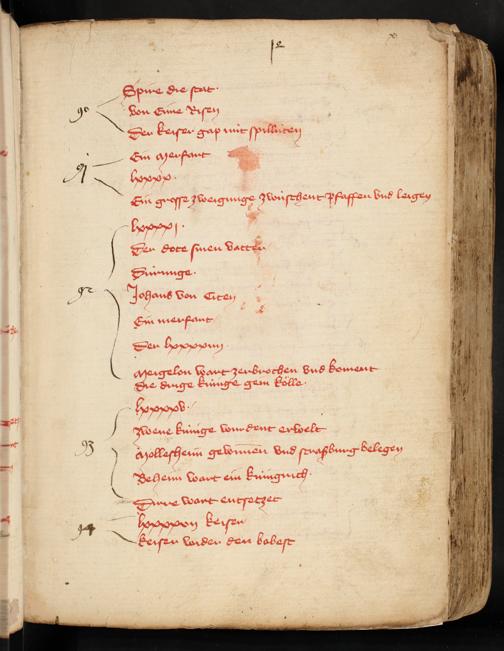 12
90
Spire die stat.
von Eime Risen
Der keiser gap mit spilluten
91
Ein merfart
lxxxx.
Ein grosse zweigunge zwüschent pfaffen und leigen
lxxxxj.
Der dote sinen vatter
Dúringe.
92
Johans von Citen
Ein merfart
Der lxxxxiiij
Meigelon wart zerbrochen und koment
die drige künige gein Kölle.
lxxxxv.
Zwene künige wurdent erwelt
93
Mollesheim gewonnen und strasburg belegen
Beheim wart ein künigrich.
wart entsetzet
94
lxxxxvij keiser
keiser wider den babest